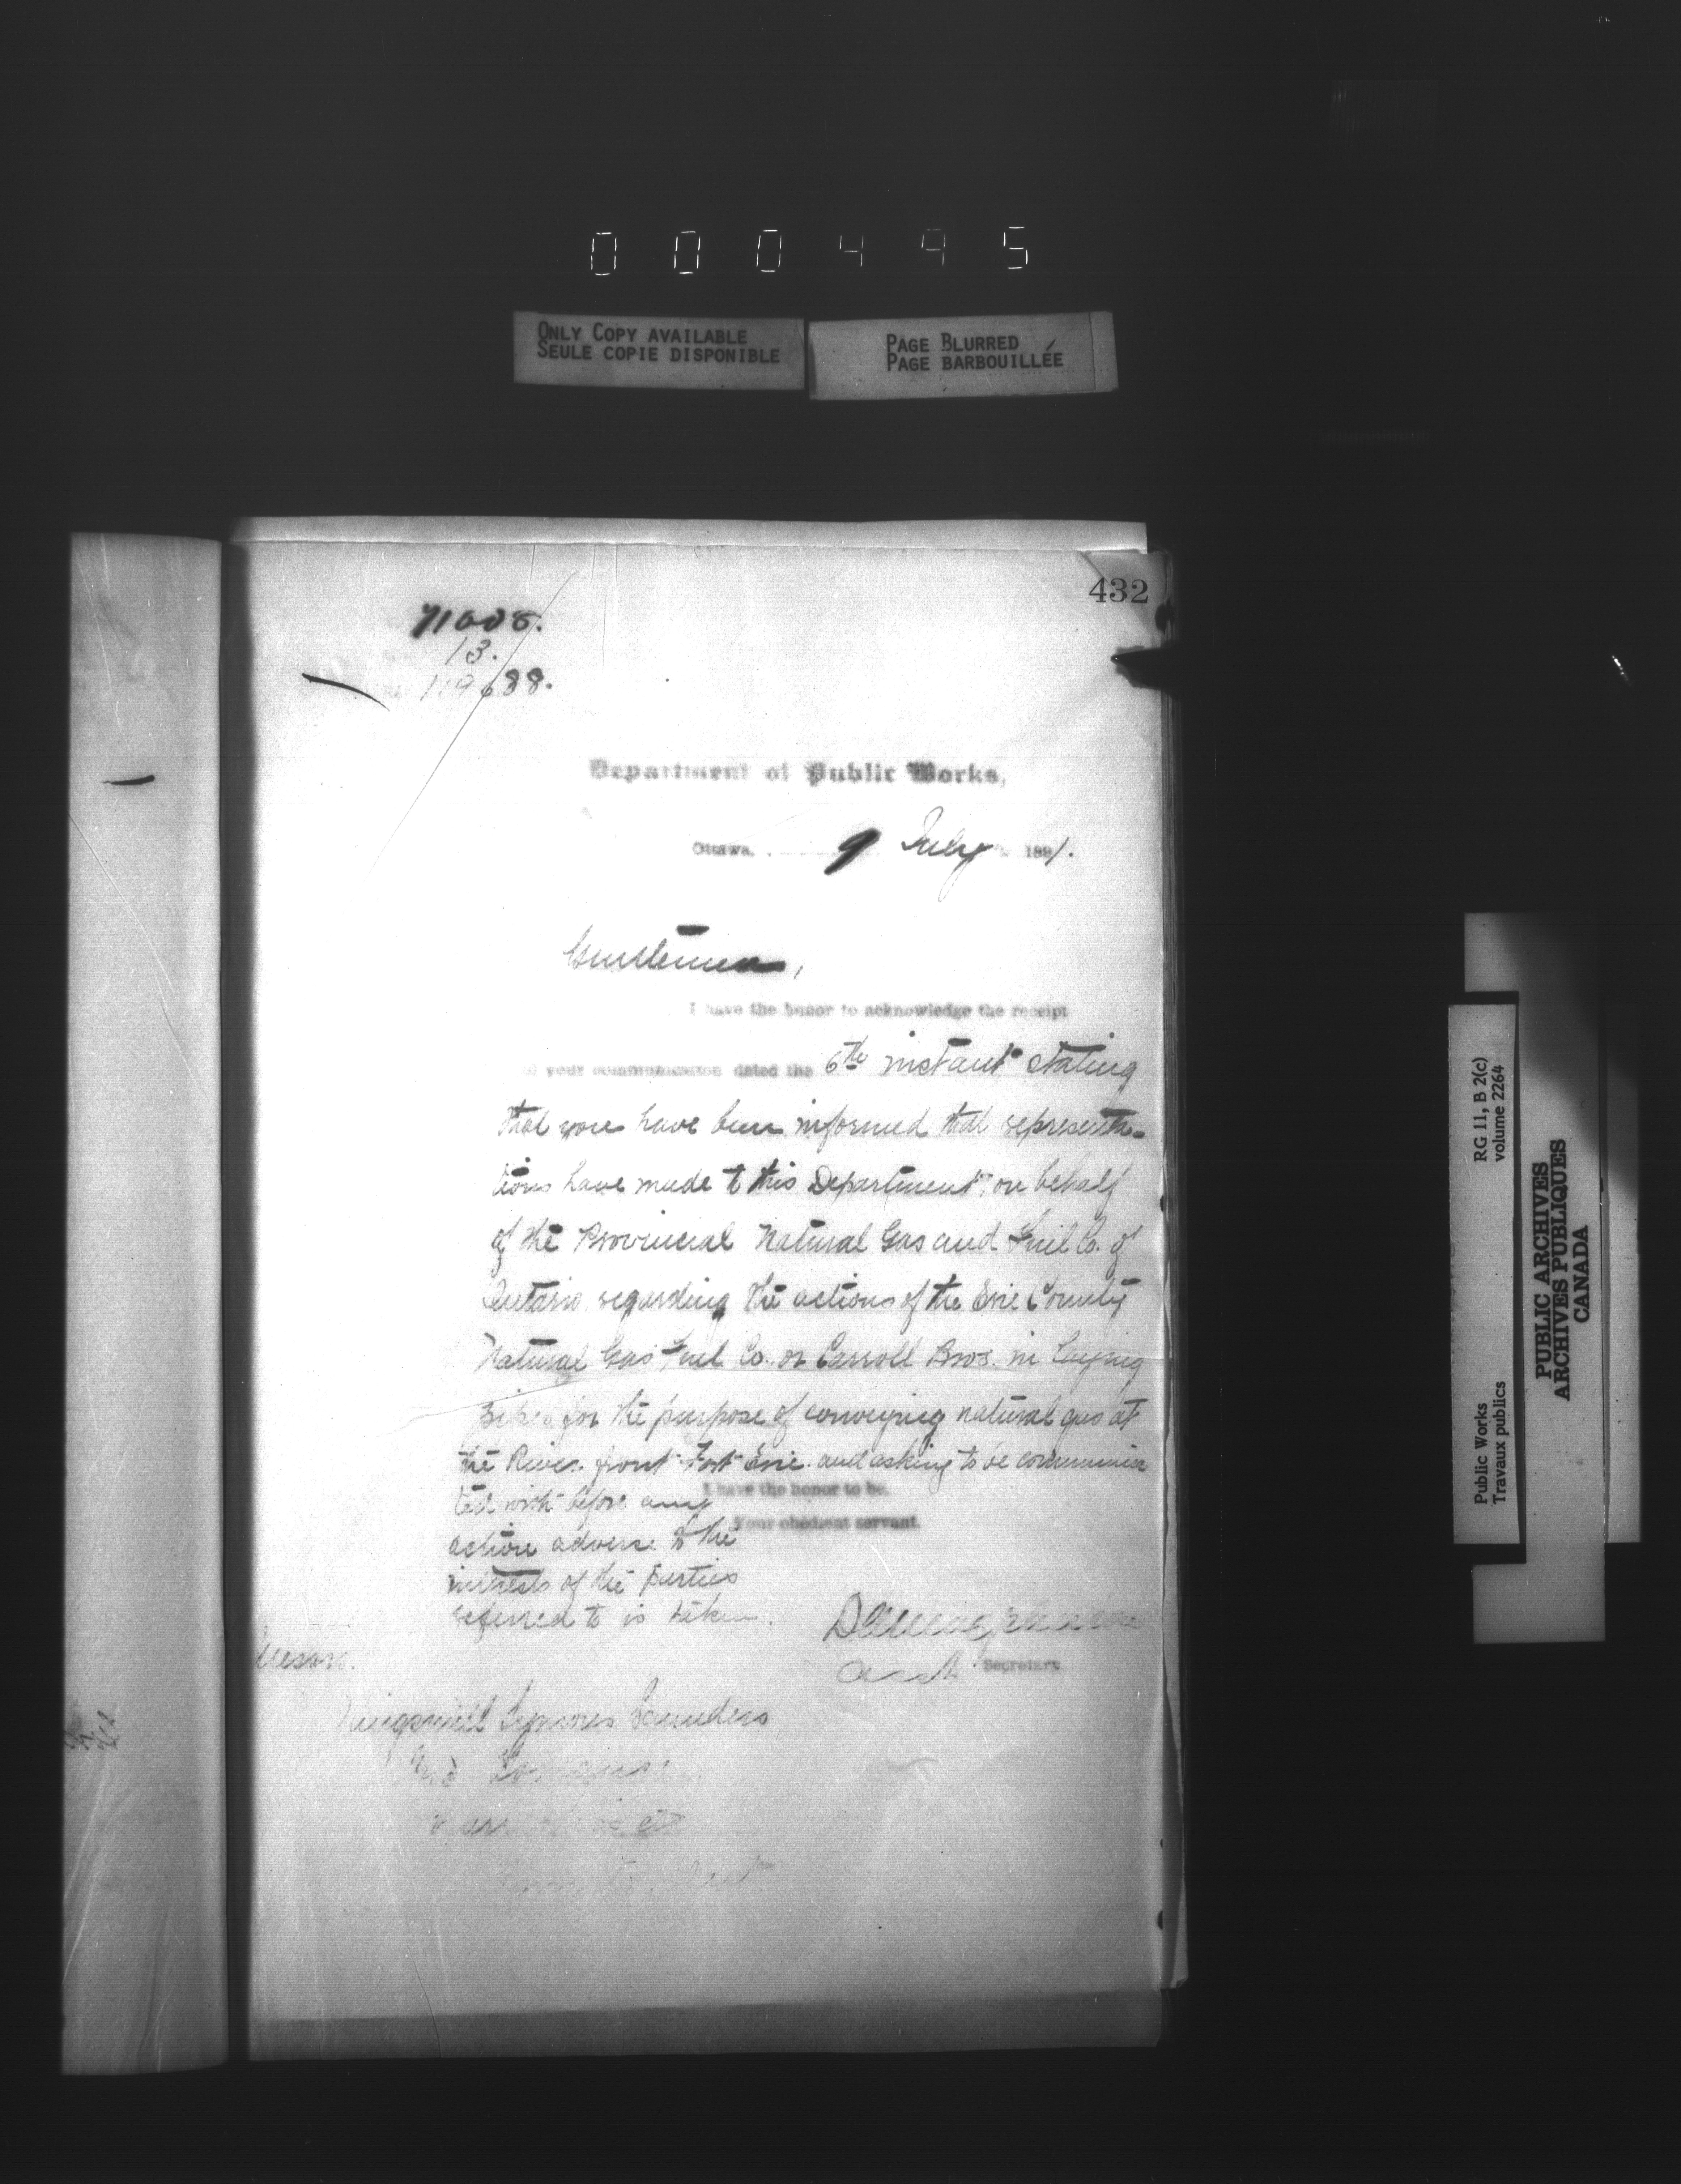 000495
ONLY COPY AVAILABLE
SEULE COPIE DISPONIBLE
PAGE BLURRED
PAGE BARBOUILLÉE
432
71608.
13.
119688.
Department of Public Works,
Ottawa, 9 July 1881.
Gentlemen,
I have the honor to acknowledge the receipt
of your communication dated the 6th instant stating
that you have been informed that representa-
tions have made to this Department, on behalf
of the Provincial Natural Gas and Fuel Co. of
Ontario regarding the actions of the Erie County
Natural Gas Fuel Co. or Carroll Bros. in laying
pipes for the purpose of conveying natural gas at
the River front Fort Erie and asking to be communica
ted with before any
action adverse to the
interests of the parties
referred to is taken.
I have the honor to be,
Your obedient servant.
Asst Secretary
Messrs.
Kingsmill Symons Saunders
RG 11, B 2(c)
volume 2264
Public Works
Travaux publics
PUBLIC ARCHIVES
ARCHIVES PUBLIQUES
CANADA